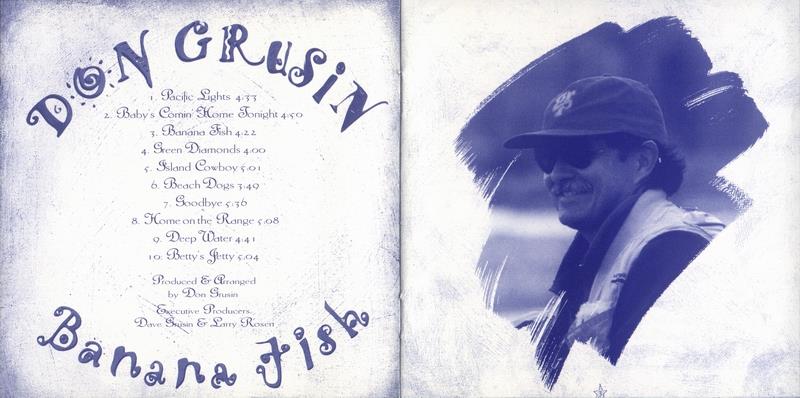 DON GRUSIN
1. Pacific Lights 4:33
2. Baby's Comin' Home Tonight 4:50
3. Banana Fish 4:22
4. Green Diamonds 4:00
5. Island Cowboy 5:01
6. Beach Dogs 3:49
7. Goodbye 5:36
8. Home on the Range 5:08
9. Deep Water 4:41
10. Betty's Jetty 5:04
Produced & Arranged
by Don Grusin
Executive Producers:
Dave Grusin & Larry Rosen
Banana Fish